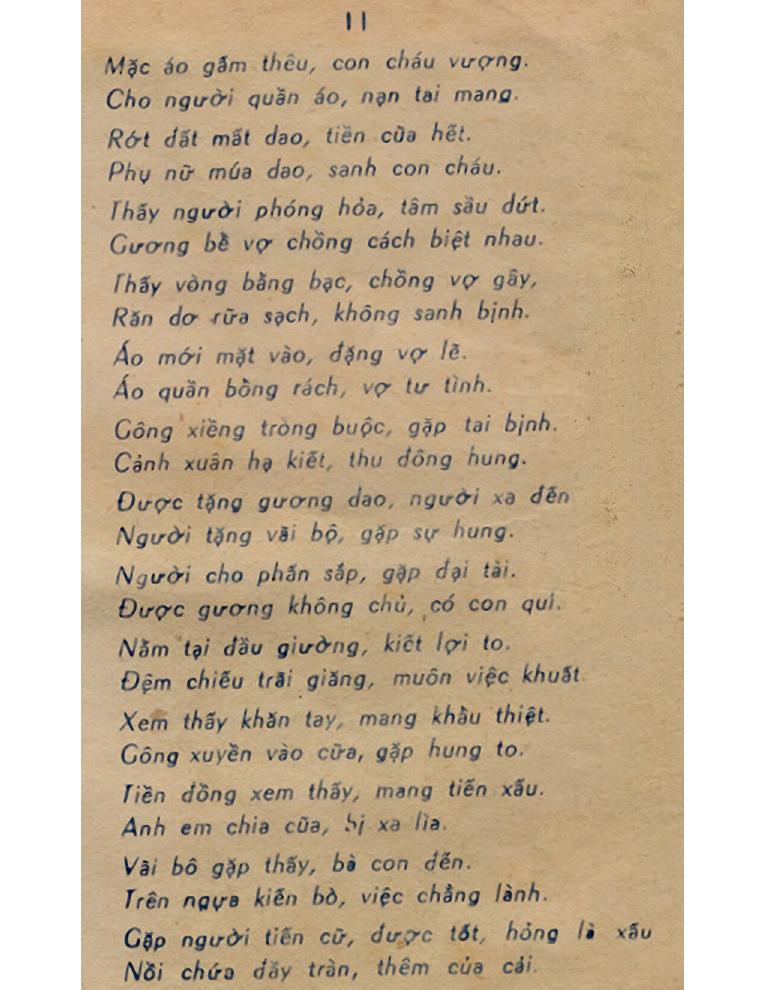 11
Mặc áo gấm thêu, con cháu vượng.
Cho người quần áo, nạn tai mang.
Rớt đất mất dao, tiền của hết.
Phụ nữ múa dao, sanh con cháu.
Thấy người phóng hỏa, tâm sầu dứt.
Gương bề vợ chồng cách biệt nhau.
Thấy vòng bằng bạc, chồng vợ gây,
Răn dơ rữa sạch, không sanh bịnh.
Áo mới mặt vào, đặng vợ lẽ.
Áo quần bồng rách, vợ tư tình.
Gông xiềng tròng buộc, gặp tai bịnh.
Cảnh xuân hạ kiết, thu đông hung.
Được tặng gương dao, người xa đến
Người tặng vãi bộ, gặp sự hung.
Người cho phấn sáp, gặp đại tài.
Được gương không chủ, có con quí.
Nằm tại đầu giường, kiết lợi to.
Đệm chiếu trãi giăng, muôn việc khuất.
Xem thấy khăn tay, mang khẩu thiệt.
Gông xuyền vào cữa, gặp hung to.
Tiền đồng xem thấy, mang tiến xấu.
Anh em chia cũa, bị xa lìa.
Vãi bô gặp thấy, bà con đến.
Trên ngựa kiến bò, việc chẳng lành.
Gặp người tiến cữ, được tốt, hỏng là xấu
Nồi chứa đầy tràn, thêm của cải.